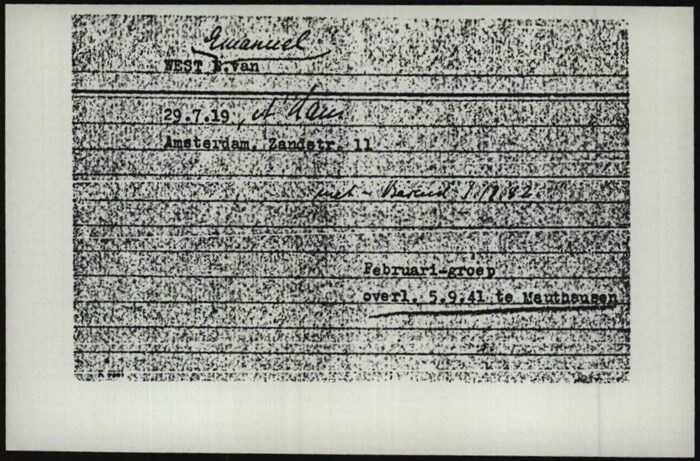 Emanuel
WEST E.van
29.7.19 A'dam
Amsterdam, Zandstr. 11
Februari-groep
overl. 5.9.41 te Mauthausen